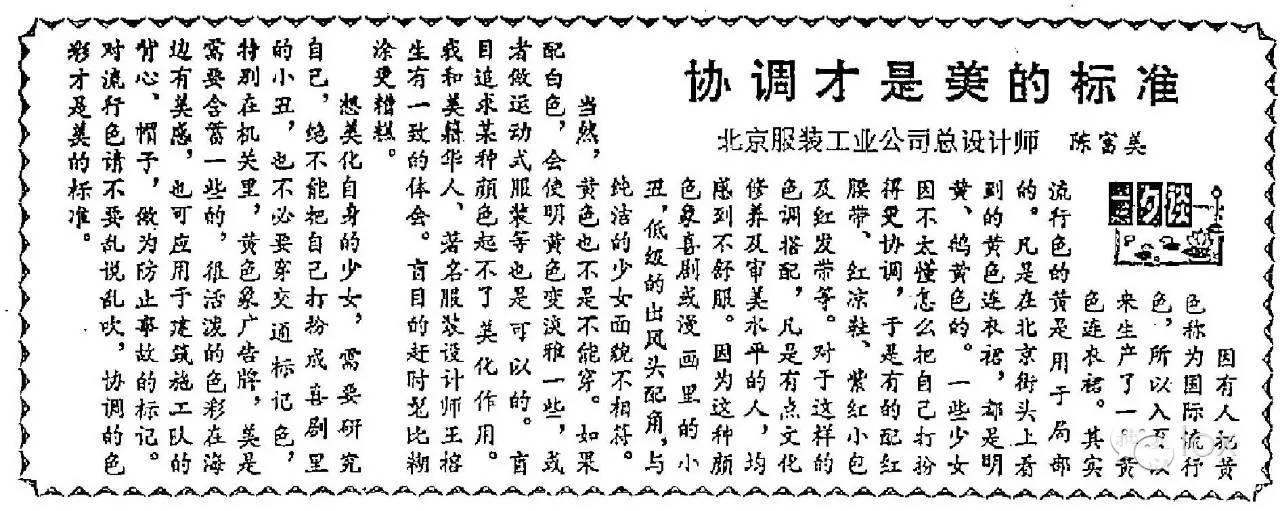 协调才是美的标准
北京服装工业公司总设计师 陈富美
因有人把黄
色称为国际流行
色，所以入夏以
来生产了一批黄
色连衣裙。其实
流行色的黄是用于局部
的。凡是在北京街头上看
到的黄色连衣裙，都是明
黄、鸹黄色的。一些少女
因不太懂怎么把自己打扮
得更协调，于是有的配红
腰带、红凉鞋、紫红小包
及红发带等。对于这样的
色调搭配，凡是有点文化
修养及审美水平的人，均
感到不舒服。因为这种颜
色象喜剧或漫画里的小
丑，低级的出风头配角，与
纯洁的少女面貌不相符。
当然，黄色也不是不能穿。如果
配白色，会使明黄色变淡雅一些，或
者做运动式服装等也是可以的。盲
目追求某种颜色起不了美化作用。
我和美籍华人、著名服装设计师王榕
生有一致的体会。盲目的赶时髦比糊
涂更糟糕。
想美化自身的少女，需要研究
自己，绝不能把自己打扮成喜剧里
的小丑，也不必要穿交通标记色，
特别在机关里，黄色象广告牌，美是
需要含蓄一些的，很活泼的色彩在海
边有美感，也可应用于建筑施工队的
背心、帽子，做为防止事故的标记。
对流行色请不要乱说乱吹，协调的色
彩才是美的标准。